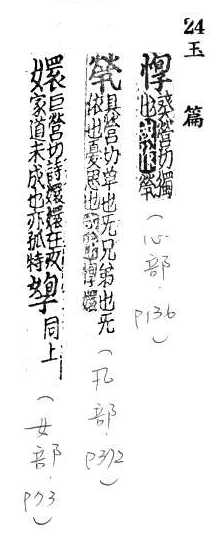 24
玉篇
惸 葵營切獨
也亦作煢
(心部. P136)
煢 具營切單也无兄弟也无
依也憂思也惸嬛
(卂部. P392)
嬛 巨營切詩嬛嬛在疚
家道未成也亦孤特
同上
(女部. P73)